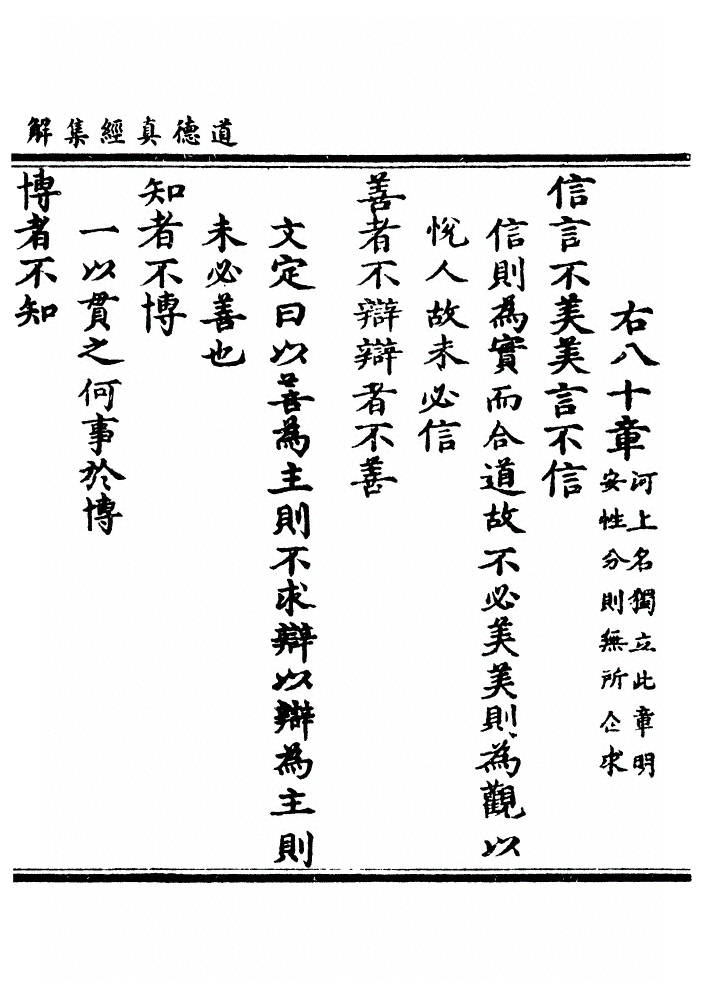 道德真經集解
右八十章
河上名獨立此章明
安性分則無所企求
信言不美美言不信
信則為實而合道故不必美美則為觀以
悅人故未必信
善者不辯辯者不善
文定曰以善為主則不求辯以辯為主則
未必善也
知者不博
一以貫之何事於博
博者不知